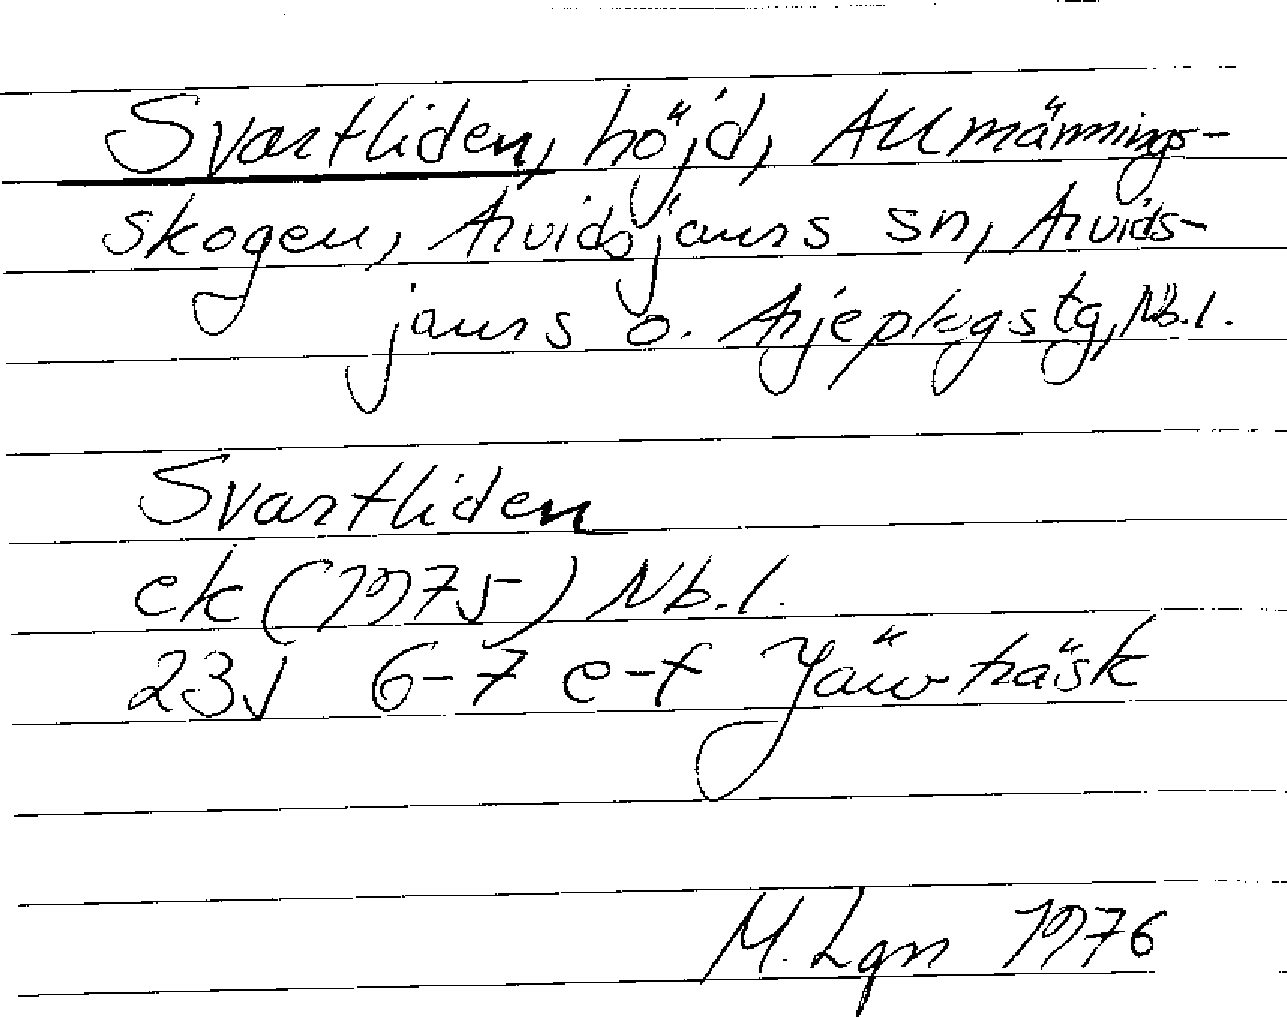 Svartliden, höjd, Allmännings-
skogen, Arvidsjaurs sn, Arvids-
jaurs o. Arjeplogs tg, Nb.l.
Svartliden
ek (1975) Nb.l.
23J 6-7 e-f Järvträsk
M. Lgn 1976